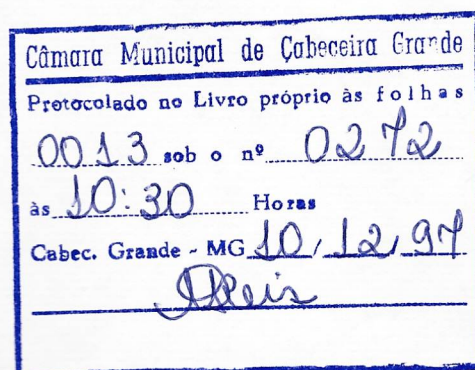 Câmara Municipal de Cabeceira Grande
Protocolado no Livro próprio às folhas
0013 sob o nº 0272
às 10:30 Horas
Cabec. Grande - MG 10/12/97